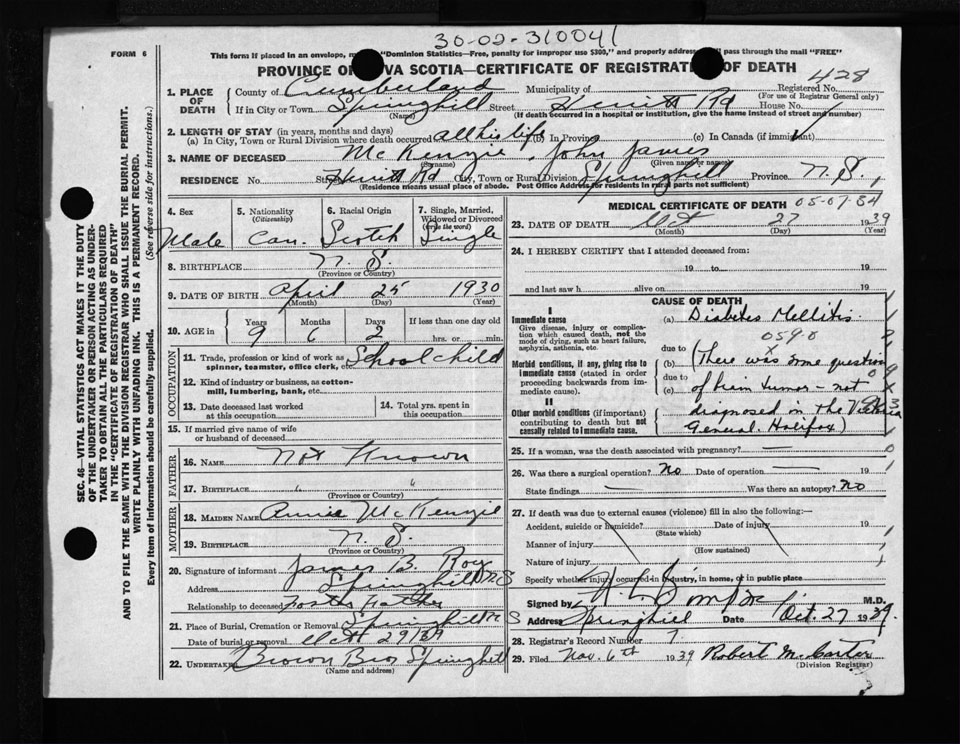 30-02-310041
FORM 6
This form if placed in an envelope, "Dominion Statistics—Free, penalty for improper use $300," and properly address pass through the mail "FREE"
PROVINCE OF VA SCOTIA—CERTIFICATE OF REGISTRAT OF DEATH
428
1. PLACE OF DEATH
County of Cumberland Municipality of Registered No.
(For use of Registrar General only)
If in City or Town Springhill Street Herrett Rd House No.
(Name) (If death occurred in a hospital or institution, give the name instead of street and number)
2. LENGTH OF STAY (in years, months and days)
(a) In City, Town or Rural Division where death occurred all his life (b) In Province (c) In Canada (if immigrant)
3. NAME OF DECEASED McKenzie, John James
(Surname) (Given name or names)
RESIDENCE No. St. Herrett Rd City, Town or Rural Division Springhill Province N.S.
(Residence means usual place of abode. Post Office Address for residents in rural parts not sufficient)
SEC. 46—VITAL STATISTICS ACT MAKES IT THE DUTY
OF THE UNDERTAKER OR PERSON ACTING AS UNDER-
TAKER TO OBTAIN ALL THE PARTICULARS REQUIRED
IN THE "CERTIFICATE OF REGISTRATION OF DEATH"
AND TO FILE THE SAME WITH THE DIVISION REGISTRAR WHO SHALL ISSUE THE BURIAL PERMIT.
WRITE PLAINLY WITH UNFADING INK. THIS IS A PERMANENT RECORD.
Every item of information should be carefully supplied. (See reverse side for instructions.)
4. Sex 5. Nationality 6. Racial Origin 7. Single, Married,
(Citizenship) Widowed or Divorced
(write the word)
Male Can. Scotch Single
8. BIRTHPLACE N.S.
(Province or Country)
9. DATE OF BIRTH April 25 1930
(Month) (Day) (Year)
10. AGE in Years Months Days If less than one day old
9 6 2 hrs. or min.
OCCUPATION
11. Trade, profession or kind of work as School child
spinner, teamster, office clerk, etc.
12. Kind of industry or business, as cotton-
mill, lumbering, bank, etc.
13. Date deceased last worked at this occupation 14. Total yrs. spent in this occupation
15. If married give name of wife
or husband of deceased
FATHER
16. Name Not Known
17. Birthplace " "
(Province or Country)
MOTHER
18. Maiden Name Annie McKenzie
19. Birthplace N.S.
(Province or Country)
20. Signature of informant James B. Roy
Address Springhill NS
Relationship to deceased Foster father
21. Place of Burial, Cremation or Removal Springhill N S
Date of burial or removal Oct 29/39
22. UNDERTAKER Brown Bros Springhill
(Name and address)
MEDICAL CERTIFICATE OF DEATH
05-07-84
23. DATE OF DEATH Oct 27 1939
(Month) (Day) (Year)
24. I HEREBY CERTIFY that I attended deceased from:
19 to 19
and last saw h alive on 19
CAUSE OF DEATH
I
Immediate cause (a) Diabetes Mellitis.
Give disease, injury or complica-
tion which caused death, not the
mode of dying, such as heart failure,
asphyxia, asthenia, etc.
059.0
due to
Morbid conditions, if any, giving rise to
immediate cause (stated in order
proceeding backwards from im-
mediate cause).
(b) (There was some question
due to
(c) of brain tumor — not
II
Other morbid conditions (if important)
contributing to death but not
causally related to immediate cause.
diagnosed in the Victoria
General. Halifax)
25. If a woman, was the death associated with pregnancy?
26. Was there a surgical operation? No Date of operation — 19
State findings — Was there an autopsy? No
27. If death was due to external causes (violence) fill in also the following:—
Accident, suicide or homicide? Date of injury 19
(State which)
Manner of injury
(How sustained)
Nature of injury
Specify whether injury occurred in industry, in home, or in public place
Signed by M.D.
Address Springhill Date Oct. 27 1939.
28. Registrar's Record Number 7
29. Filed Nov. 6th 1939 Robert M. Carter
(Division Registrar)